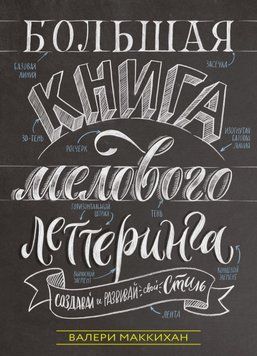 БОЛЬШАЯ
БАЗОВАЯ ЛИНИЯ
ЗАСЕЧКА
КНИГА
3D-ТЕНЬ
РОСЧЕРК
ИЗОГНУТАЯ БАЗОВАЯ ЛИНИЯ
мелового
ГОРИЗОНТАЛЬНЫЙ ШТРИХ
ТЕНЬ
леттеринга
ВЫНОСНОЙ ЭЛЕМЕНТ
КОНЦЕВОЙ ЭЛЕМЕНТ
СОЗДАВАЙ и РАЗВИВАЙ свой Стиль
ЛЕНТА
ВАЛЕРИ МАККИХАН